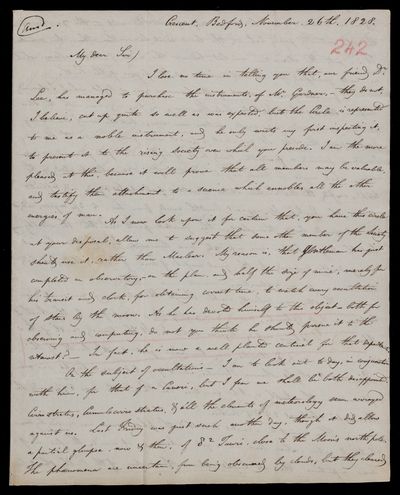 Crescent, Bedford, November 26th, 1828.
242
My dear Sir,
I lose no time in telling you that, our friend, Dr.
Lee, has managed to purchase the instruments, of Mr. Goodman, — they do not,
I believe, cut up quite so well as was expected, but the Circle is represented
to me as a noble instrument, and he only waits my first inspecting it,
to present it to the rising society over which you preside. I am the more
pleased at this, because it will prove that all members may be valuable,
and testify their attachment to a science which ennobles all the other
energies of man.
As I now look upon it for certain that, you have this circle
at your disposal, allow me to suggest that some other member of the Society
should use it, rather than Maclear. My reason is, that Gentleman has just
completed an observatory, on the plan, and half the size of mine, merely for
his transit and clock, for obtaining correct time, to watch every occultation
of stars by the moon. As he has devoted himself to this object — both for
observing and computing, do not you think he should pursue it to the
utmost? — In fact, he is now a well planted centinel for that
On the subject of occultations — I am to look out to day, in conjunction
with him, for that of Cancri, but I fear we shall be both disappointed,
Cirro stratus, Cumulo cirro stratus, & all the elements of meteorology seem arranged
against us. Last Friday was just such another day, though it did allow
a partial glimpse, now & then, of δ² Tauri, close to the Moons north pole.
The phenomena are uncertain, from being obscured by clouds, but they cleared